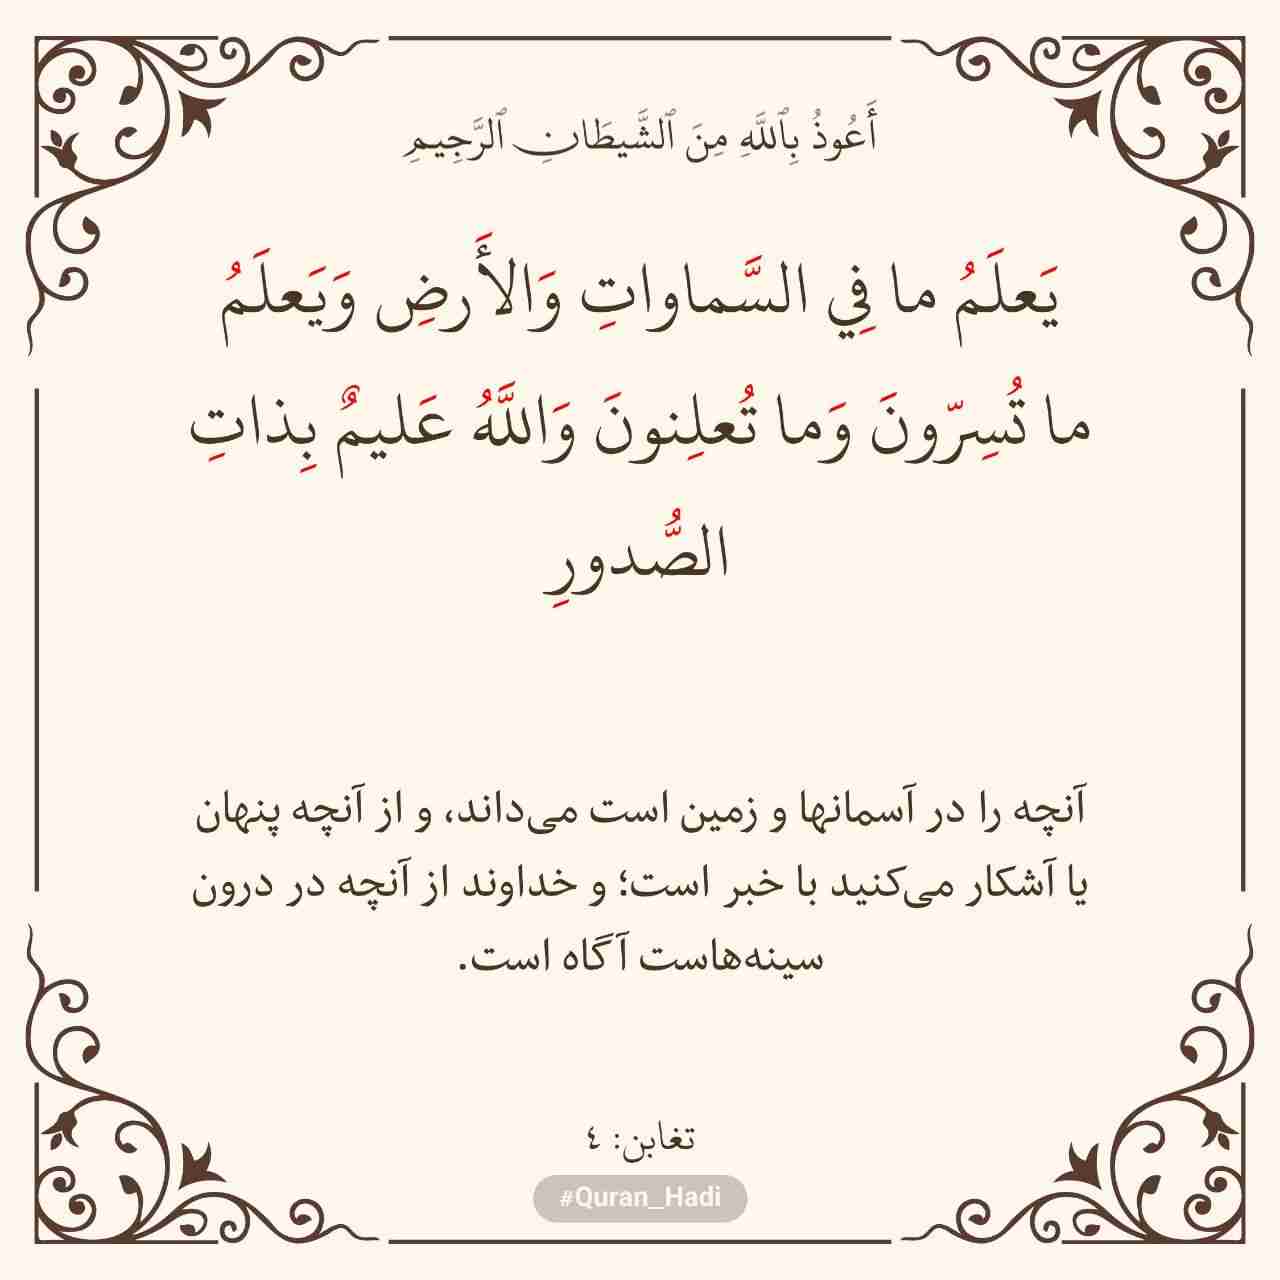 أَعُوذُ بِٱللَّهِ مِنَ ٱلشَّيطَانِ ٱلرَّجِيمِ
يَعلَمُ ما فِي السَّماواتِ وَالأَرضِ وَيَعلَمُ
ما تُسِرّونَ وَما تُعلِنونَ وَاللَّهُ عَليمٌ بِذاتِ
الصُّدورِ
آنچه را در آسمانها و زمین است می‌داند، و از آنچه پنهان
یا آشکار می‌کنید با خبر است؛ و خداوند از آنچه در درون
سینه‌هاست آگاه است.
تغابن: ٤
#Quran_Hadi